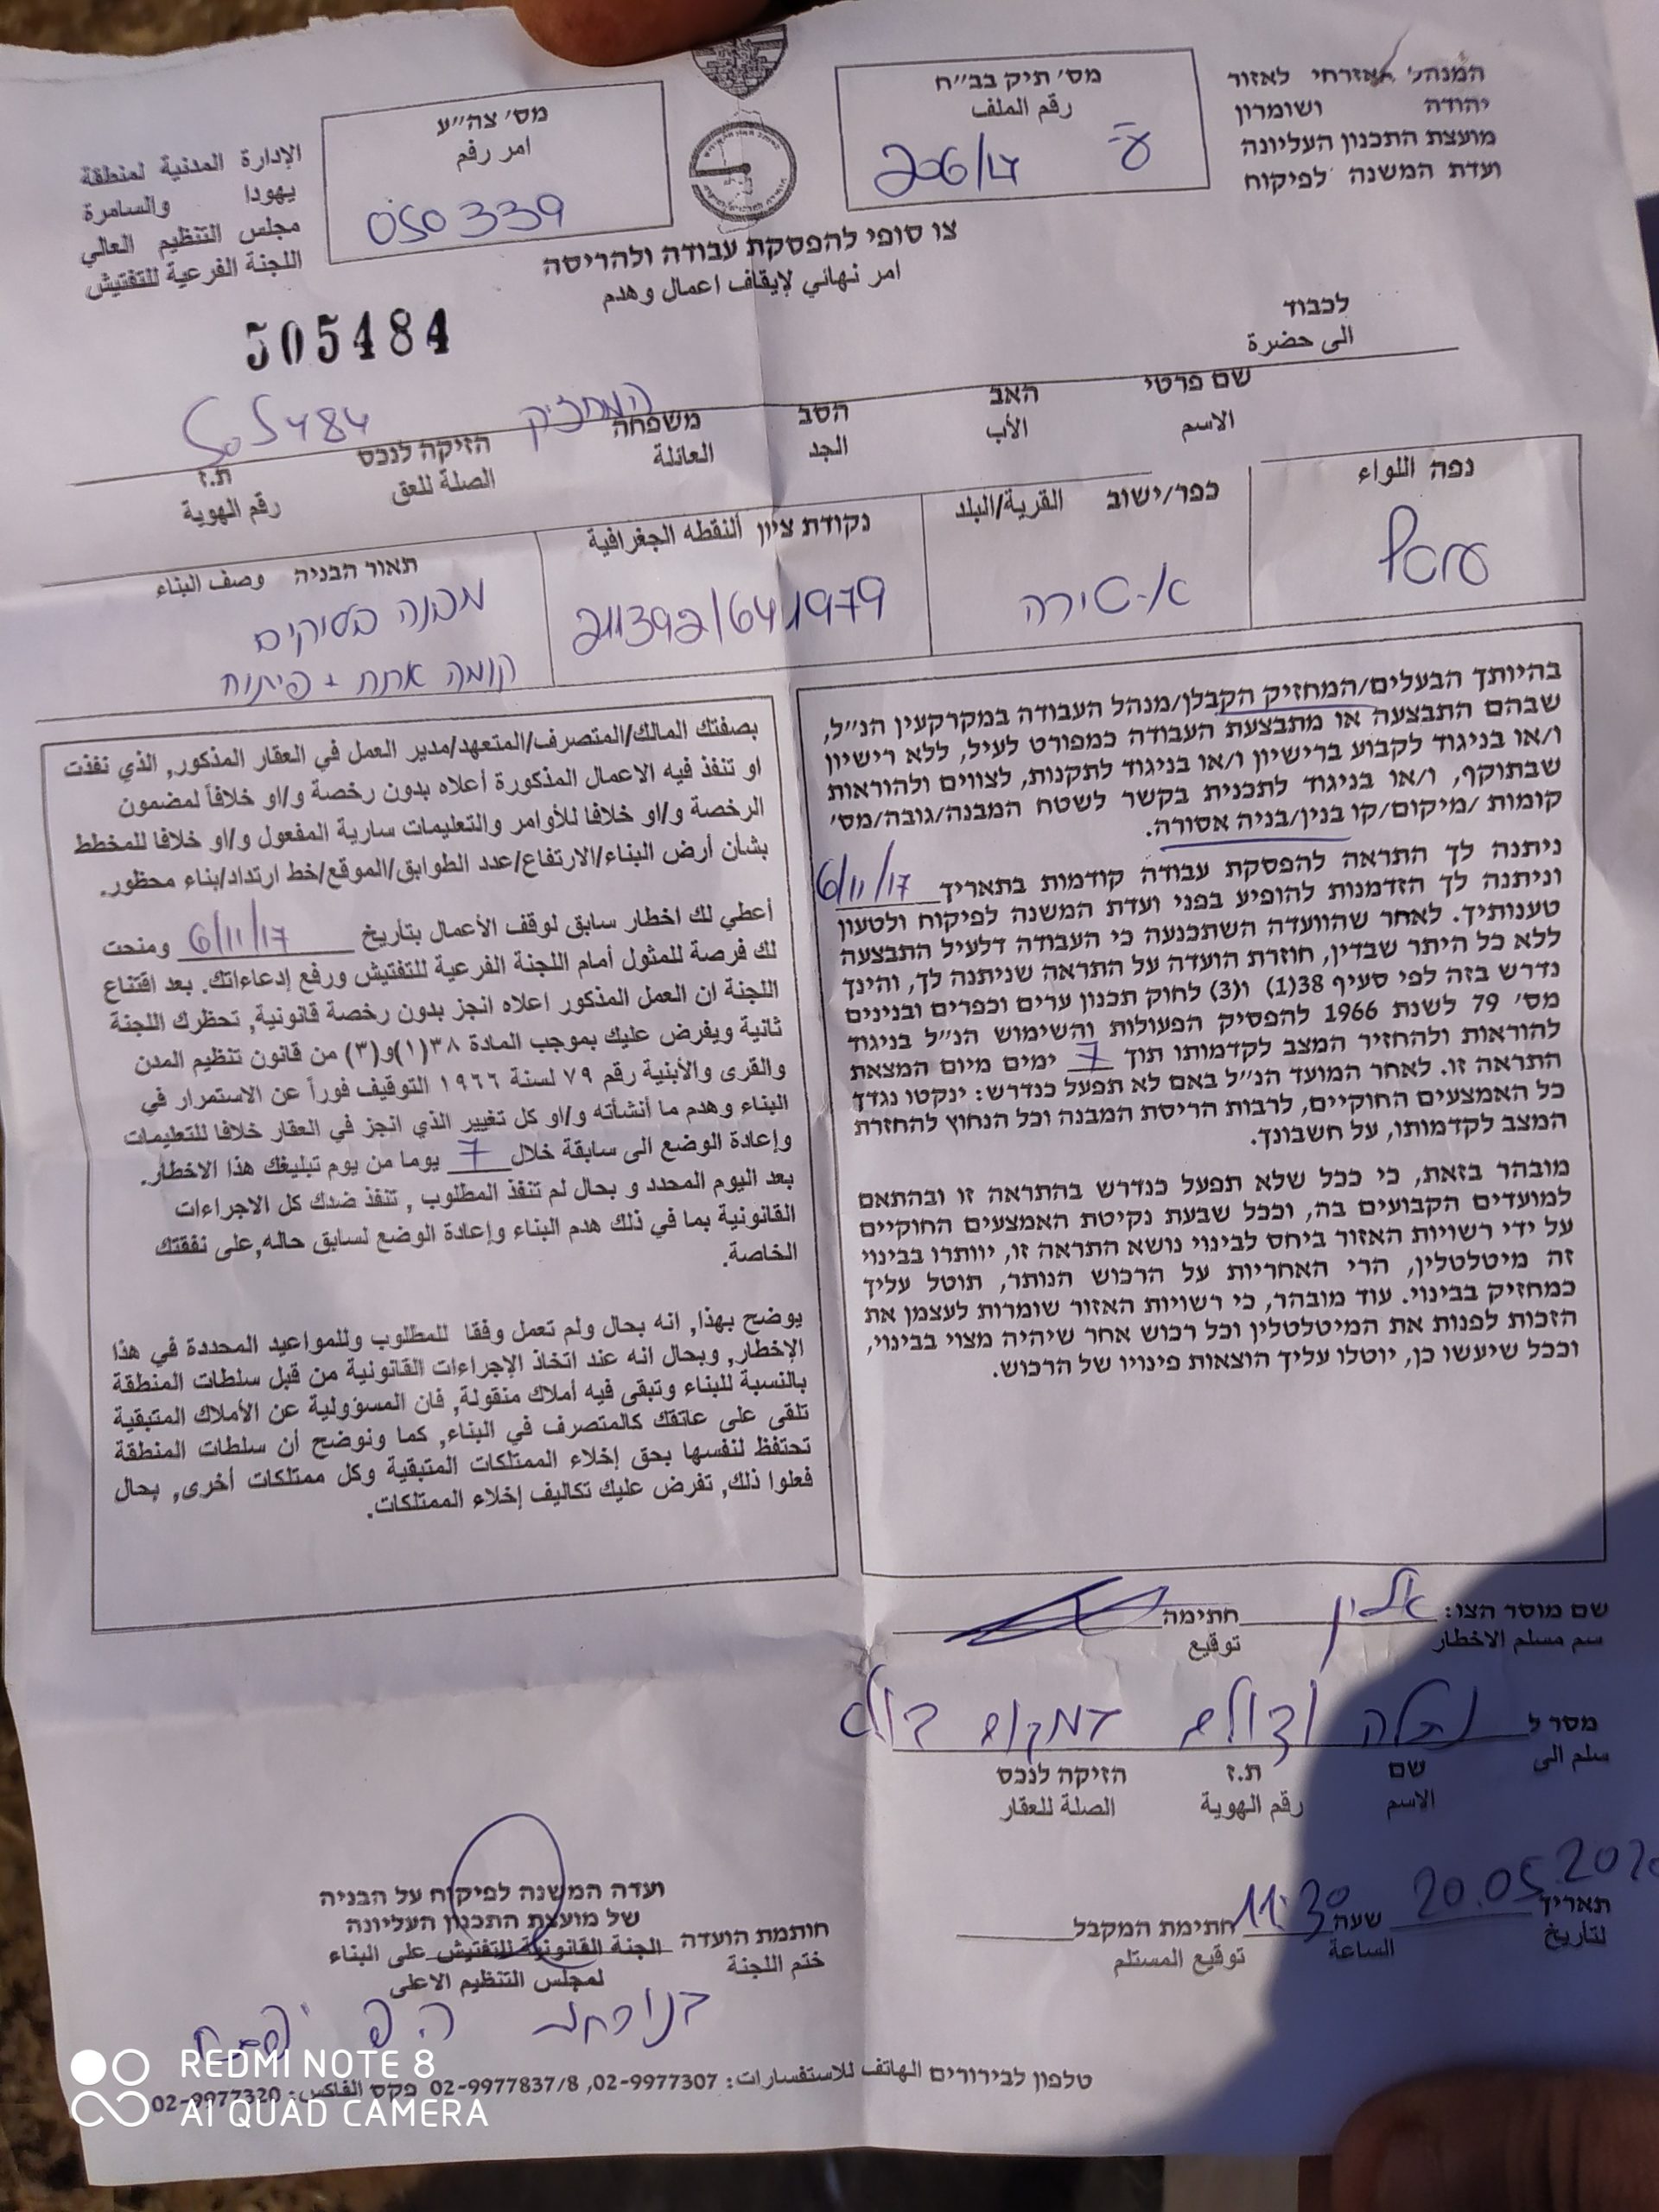 המנהל האזרחי לאזור
יהודה ושומרון
מועצת התכנון העליונה
ועדת המשנה לפיקוח
מס׳ תיק בב״ח
رقم الملف
ع 206/17
מס׳ צה״ע
امر رقم
050339
الإدارة المدنية لمنطقة
يهودا والسامرة
مجلس التنظيم العالي
اللجنة الفرعية للتفتيش
צו סופי להפסקת עבודה ולהריסה
امر نهائي لإيقاف اعمال وهدم
505484
לכבוד
الى حضرة
המחזיק 505484
שם פרטי האב הסב משפחה הזיקה לנכס ת.ז
الاسم الأب الجد العائلة الصلة للعق رقم الهوية
נפה اللواء
כפר/ישוב القرية/البلد
א-טירה
נקודת ציון ألنقطه الجغرافية
211392/641979
תאור הבניה وصف البناء
מבנה בסוקים
קומה אחת + פיתוח
בהיותך הבעלים/המחזיק הקבלן/מנהל העבודה במקרקעין הנ״ל,
שבהם התבצעה או מתבצעת העבודה כמפורט לעיל, ללא רישיון
ו/או בניגוד לקבוע ברישיון ו/או בניגוד לתקנות, לצווים ולהוראות
שבתוקף, ו/או בניגוד לתכנית בקשר לשטח המבנה/גובה/מס׳
קומות /מיקום/קו בנין/בניה אסורה.
ניתנה לך התראה להפסקת עבודה קודמות בתאריך 6/11/17
וניתנה לך הזדמנות להופיע בפני ועדת המשנה לפיקוח ולטעון
טענותיך. לאחר שהוועדה השתכנעה כי העבודה דלעיל התבצעה
ללא כל היתר שבדין, חוזרת הועדה על התראה שניתנה לך, והינך
נדרש בזה לפי סעיף 38(1) ו(3) לחוק תכנון ערים וכפרים ובנינים
מס׳ 79 לשנת 1966 להפסיק הפעולות והשימוש הנ״ל בניגוד
להוראות ולהחזיר המצב לקדמותו תוך 7 ימים מיום המצאת
התראה זו. לאחר המועד הנ״ל באם לא תפעל כנדרש: ינקטו נגדך
כל האמצעים החוקיים, לרבות הריסת המבנה וכל הנחוץ להחזרת
המצב לקדמותו, על חשבונך.
מובהר בזאת, כי ככל שלא תפעל כנדרש בהתראה זו ובהתאם
למועדים הקבועים בה, וככל שבעת נקיטת האמצעים החוקיים
על ידי רשויות האזור ביחס לבינוי נושא התראה זו, יוותרו בבינוי
זה מיטלטלין, הרי האחריות על הרכוש הנותר, תוטל עליך
כמחזיק בבינוי. עוד מובהר, כי רשויות האזור שומרות לעצמן את
הזכות לפנות את המיטלטלין וכל רכוש אחר שיהיה מצוי בבינוי,
וככל שיעשו כן, יוטלו עליך הוצאות פינויו של הרכוש.
بصفتك المالك/المتصرف/المتعهد/مدير العمل في العقار المذكور, الذي نفذت
او تنفذ فيه الاعمال المذكورة أعلاه بدون رخصة و/او خلافاً لمضمون
الرخصة و/او خلافا للأوامر والتعليمات سارية المفعول و/او خلافا للمخطط
بشأن أرض البناء/الارتفاع/عدد الطوابق/الموقع/خط ارتداد/بناء محظور.
أعطي لك اخطار سابق لوقف الأعمال بتأريخ 6/11/17 ومنحت
لك فرصة للمثول أمام اللجنة الفرعية للتفتيش ورفع إدعاءاتك. بعد اقتناع
اللجنة ان العمل المذكور اعلاه انجز بدون رخصة قانونية, تحظرك اللجنة
ثانية ويفرض عليك بموجب المادة ٣٨(١)و(٣) من قانون تنظيم المدن
والقرى والأبنية رقم ٧٩ لسنة ١٩٦٦ التوقيف فوراً عن الاستمرار في
البناء وهدم ما أنشأته و/او كل تغيير الذي انجز في العقار خلافا للتعليمات
وإعادة الوضع الى سابقة خلال 7 يوما من يوم تبليغك هذا الاخطار.
بعد اليوم المحدد و بحال لم تنفذ المطلوب , تنفذ ضدك كل الاجراءات
القانونية بما في ذلك هدم البناء وإعادة الوضع لسابق حاله,على نفقتك
الخاصة.
يوضح بهذا, انه بحال ولم تعمل وفقا للمطلوب وللمواعيد المحددة في هذا
الإخطار, وبحال انه عند اتخاذ الإجراءات القانونية من قبل سلطات المنطقة
بالنسبة للبناء وتبقى فيه أملاك منقولة, فان المسؤولية عن الأملاك المتبقية
تلقى على عاتقك كالمتصرف في البناء, كما ونوضح أن سلطات المنطقة
تحتفظ لنفسها بحق إخلاء الممتلكات المتبقية وكل ممتلكات أخرى, بحال
فعلوا ذلك, تفرض عليك تكاليف إخلاء الممتلكات.
שם מוסר הצו: חתימה
سم مسلم الاخطار توقيع
מסר ל במקום בולט
سلم الى
שם ת.ז הזיקה לנכס
الاسم رقم الهوية الصلة للعقار
תאריך 20.05.202 שעה 11:30 חתימת המקבל
لتأريخ الساعة توقيع المستلم
ועדה המשנה לפיקוח על הבניה
של מועצת התכנון העליונה
חותמת הועדה الجنة القانونية للتفتيش على البناء
ختم اللجنة لمجلس التنظيم الاعلى
טלפון לבירורים الهاتف للاستفسارات: 02-9977307, 02-9977837/8 פקס الفاكس: 02-9977320
REDMI NOTE 8
AI QUAD CAMERA